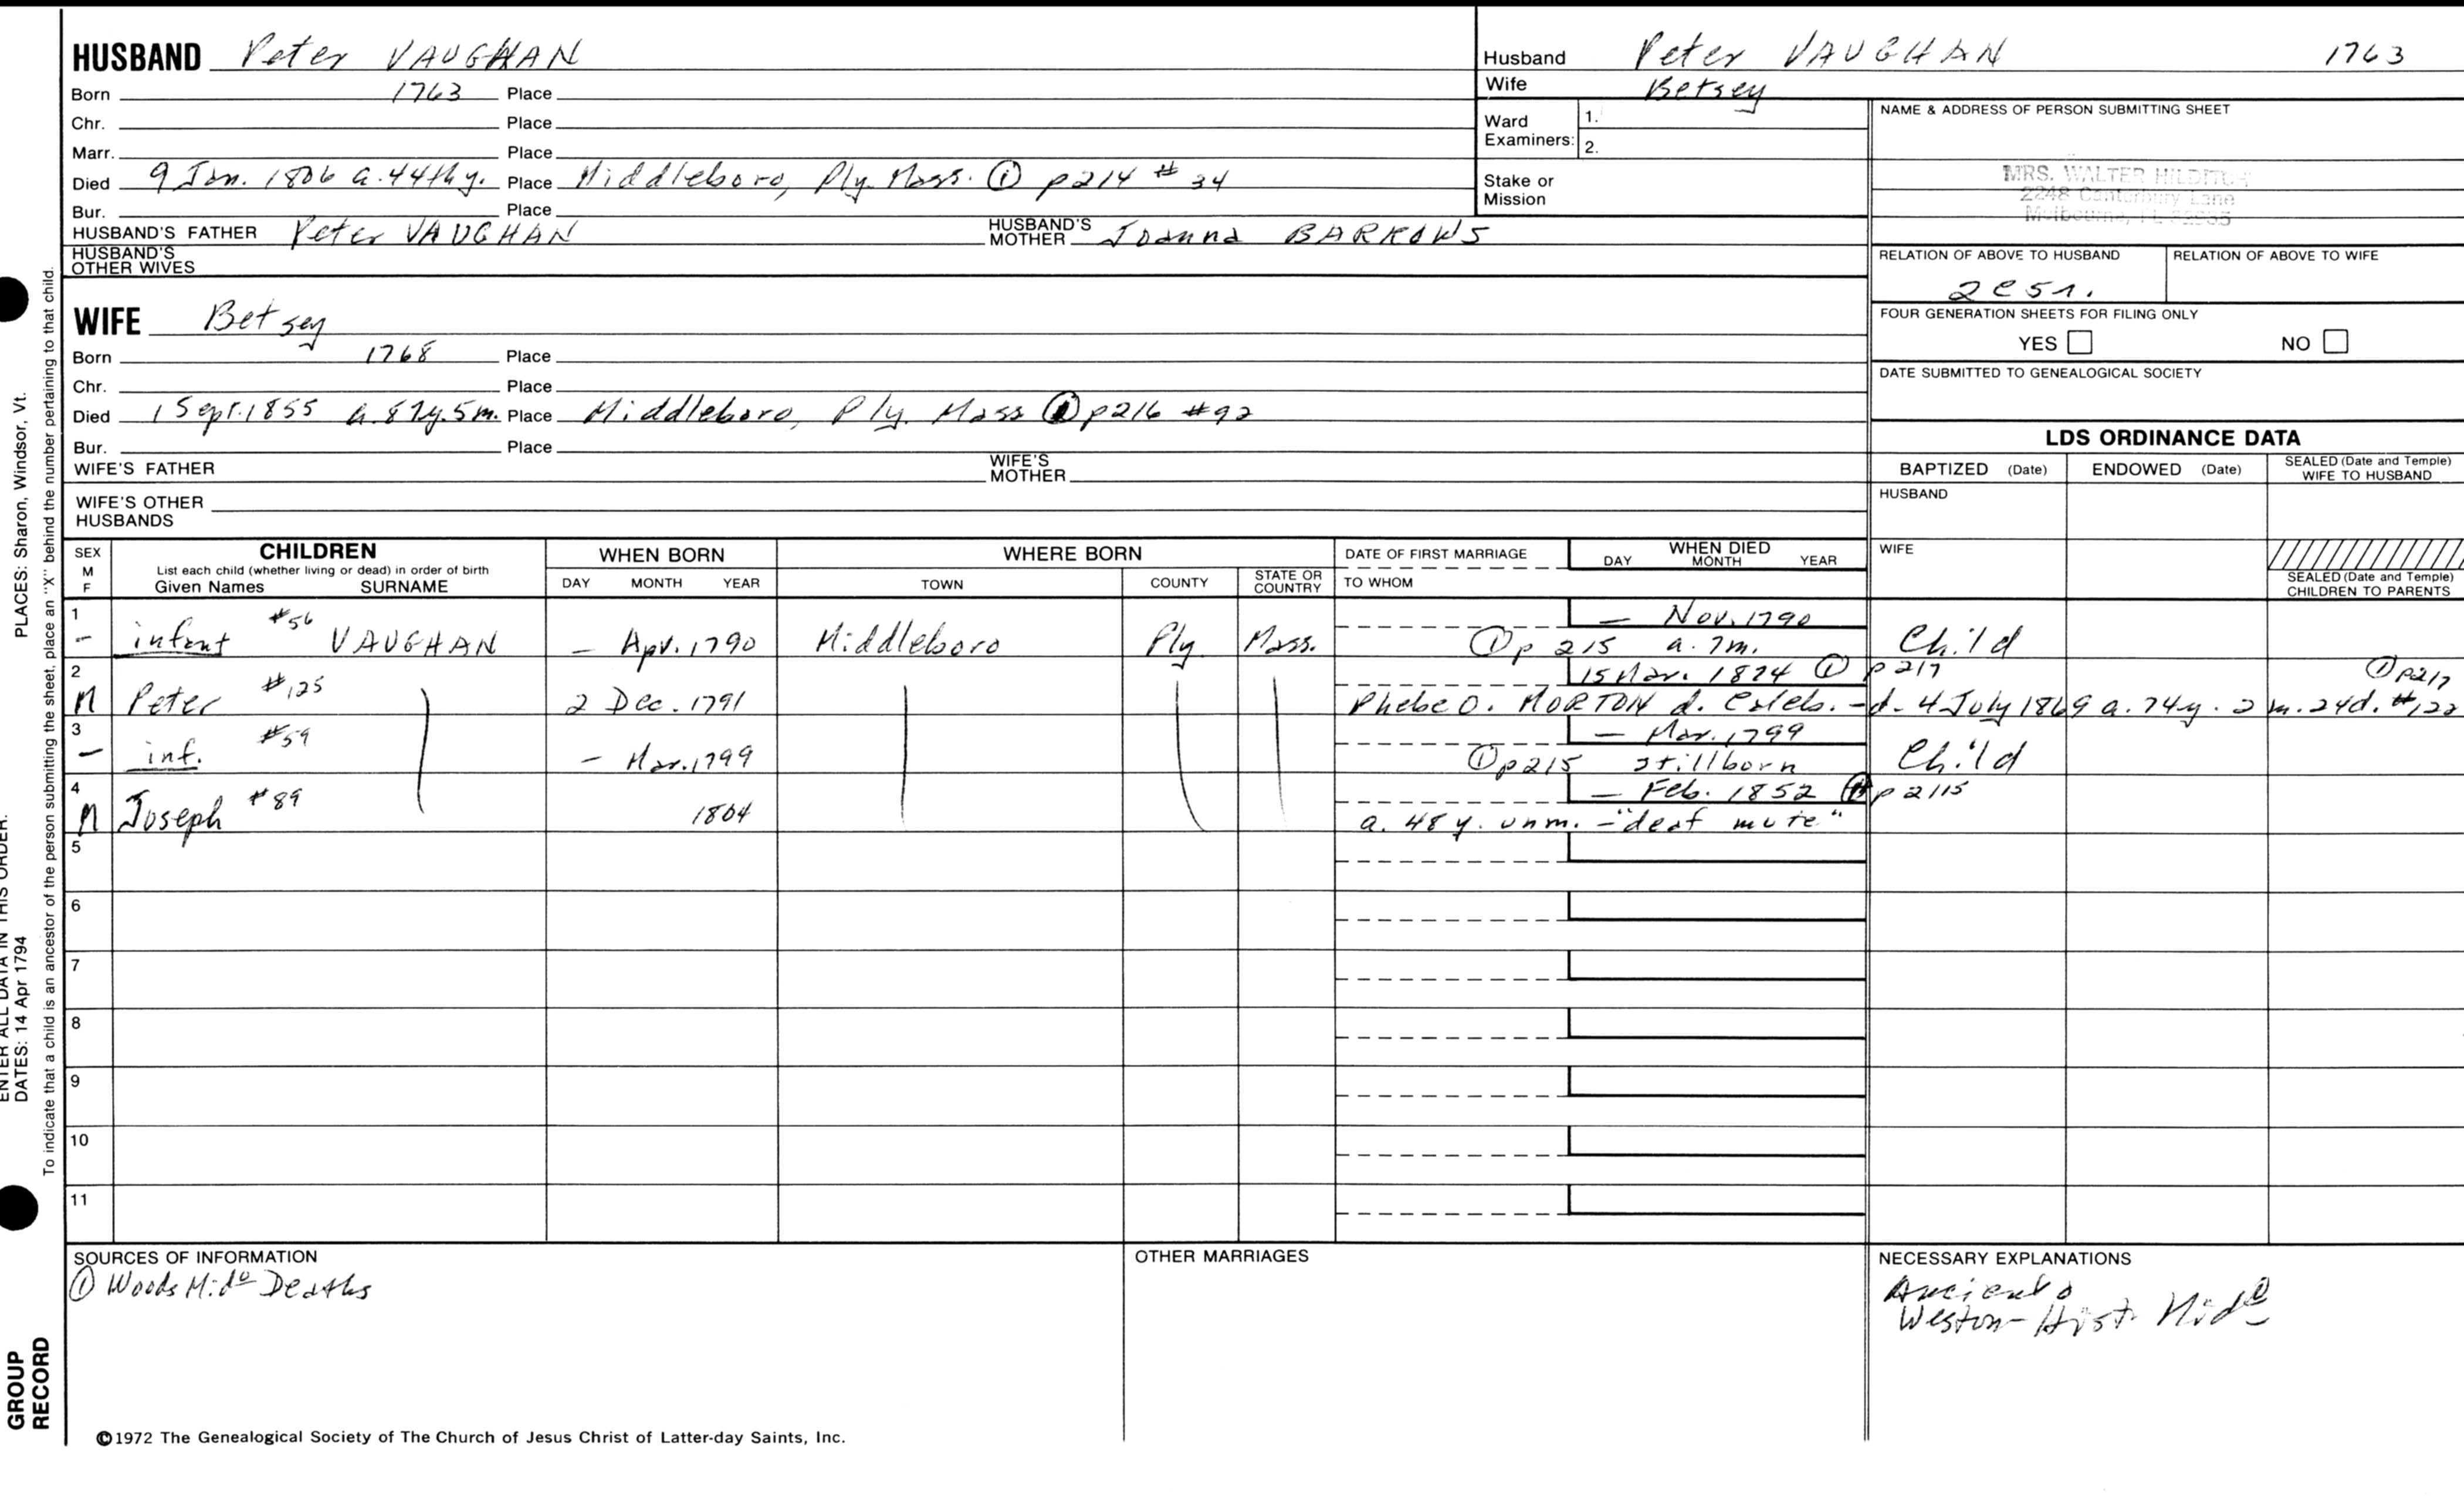 HUSBAND Peter VAUGHAN
Born 1763 Place
Chr. Place
Marr. Place
Died 9 Jan. 1806 a. 44th y. Place Middleboro, Ply. Mass. ① p214 # 34
Bur. Place
HUSBAND'S FATHER Peter VAUGHAN HUSBAND'S MOTHER Joanna BARROWS
HUSBAND'S OTHER WIVES
WIFE Betsey
Born 1768 Place
Chr. Place
Died 1 Sept. 1855 a. 87y. 5m. Place Middleboro, Ply. Mass ① p216 #92
Bur. Place
WIFE'S FATHER WIFE'S MOTHER
WIFE'S OTHER HUSBANDS
Husband Peter VAUGHAN 1763
Wife Betsey
Ward Examiners: 1.
2.
Stake or Mission
NAME & ADDRESS OF PERSON SUBMITTING SHEET
MRS. WALTER HILDITCH
2248 Canterbury Lane
Melbourne, FL 32935
RELATION OF ABOVE TO HUSBAND RELATION OF ABOVE TO WIFE
FOUR GENERATION SHEETS FOR FILING ONLY
YES NO
DATE SUBMITTED TO GENEALOGICAL SOCIETY
LDS ORDINANCE DATA
BAPTIZED (Date) ENDOWED (Date) SEALED (Date and Temple) WIFE TO HUSBAND
HUSBAND
WIFE
SEALED (Date and Temple) CHILDREN TO PARENTS
SEX M F
CHILDREN
List each child (whether living or dead) in order of birth
Given Names SURNAME
WHEN BORN
DAY MONTH YEAR
WHERE BORN
TOWN COUNTY STATE OR COUNTRY
DATE OF FIRST MARRIAGE
TO WHOM
WHEN DIED
DAY MONTH YEAR
1 — Nov. 1790
- infant #56 VAUGHAN — Apr. 1790 Middleboro Ply. Mass. ① p 215 a. 7m. Child
2 15 Mar. 1874 ① p 217 ① p217
M Peter #125 2 Dec. 1791 Phebe O. MORTON d. - d. 4 July 1869 a. 74y. 2 m. 24d. #122
3 — Mar. 1799
— inf. #59 — Mar. 1799 ① p215 stillborn Child
4 — Feb. 1852 ① p 2115
M Joseph #89 1804 a. 48 y. unm. - "deaf mute"
5
6
7
8
9
10
11
SOURCES OF INFORMATION
① Woods Mido Deaths
OTHER MARRIAGES
NECESSARY EXPLANATIONS
Weston - Hist.
©1972 The Genealogical Society of The Church of Jesus Christ of Latter-day Saints, Inc.
PLACES: Sharon, Windsor, Vt.
ENTER ALL DATA IN THIS ORDER:
DATES: 14 Apr 1794
To indicate that a child is an ancestor of the person submitting the sheet, place an "X" behind the number pertaining to that child.
GROUP RECORD